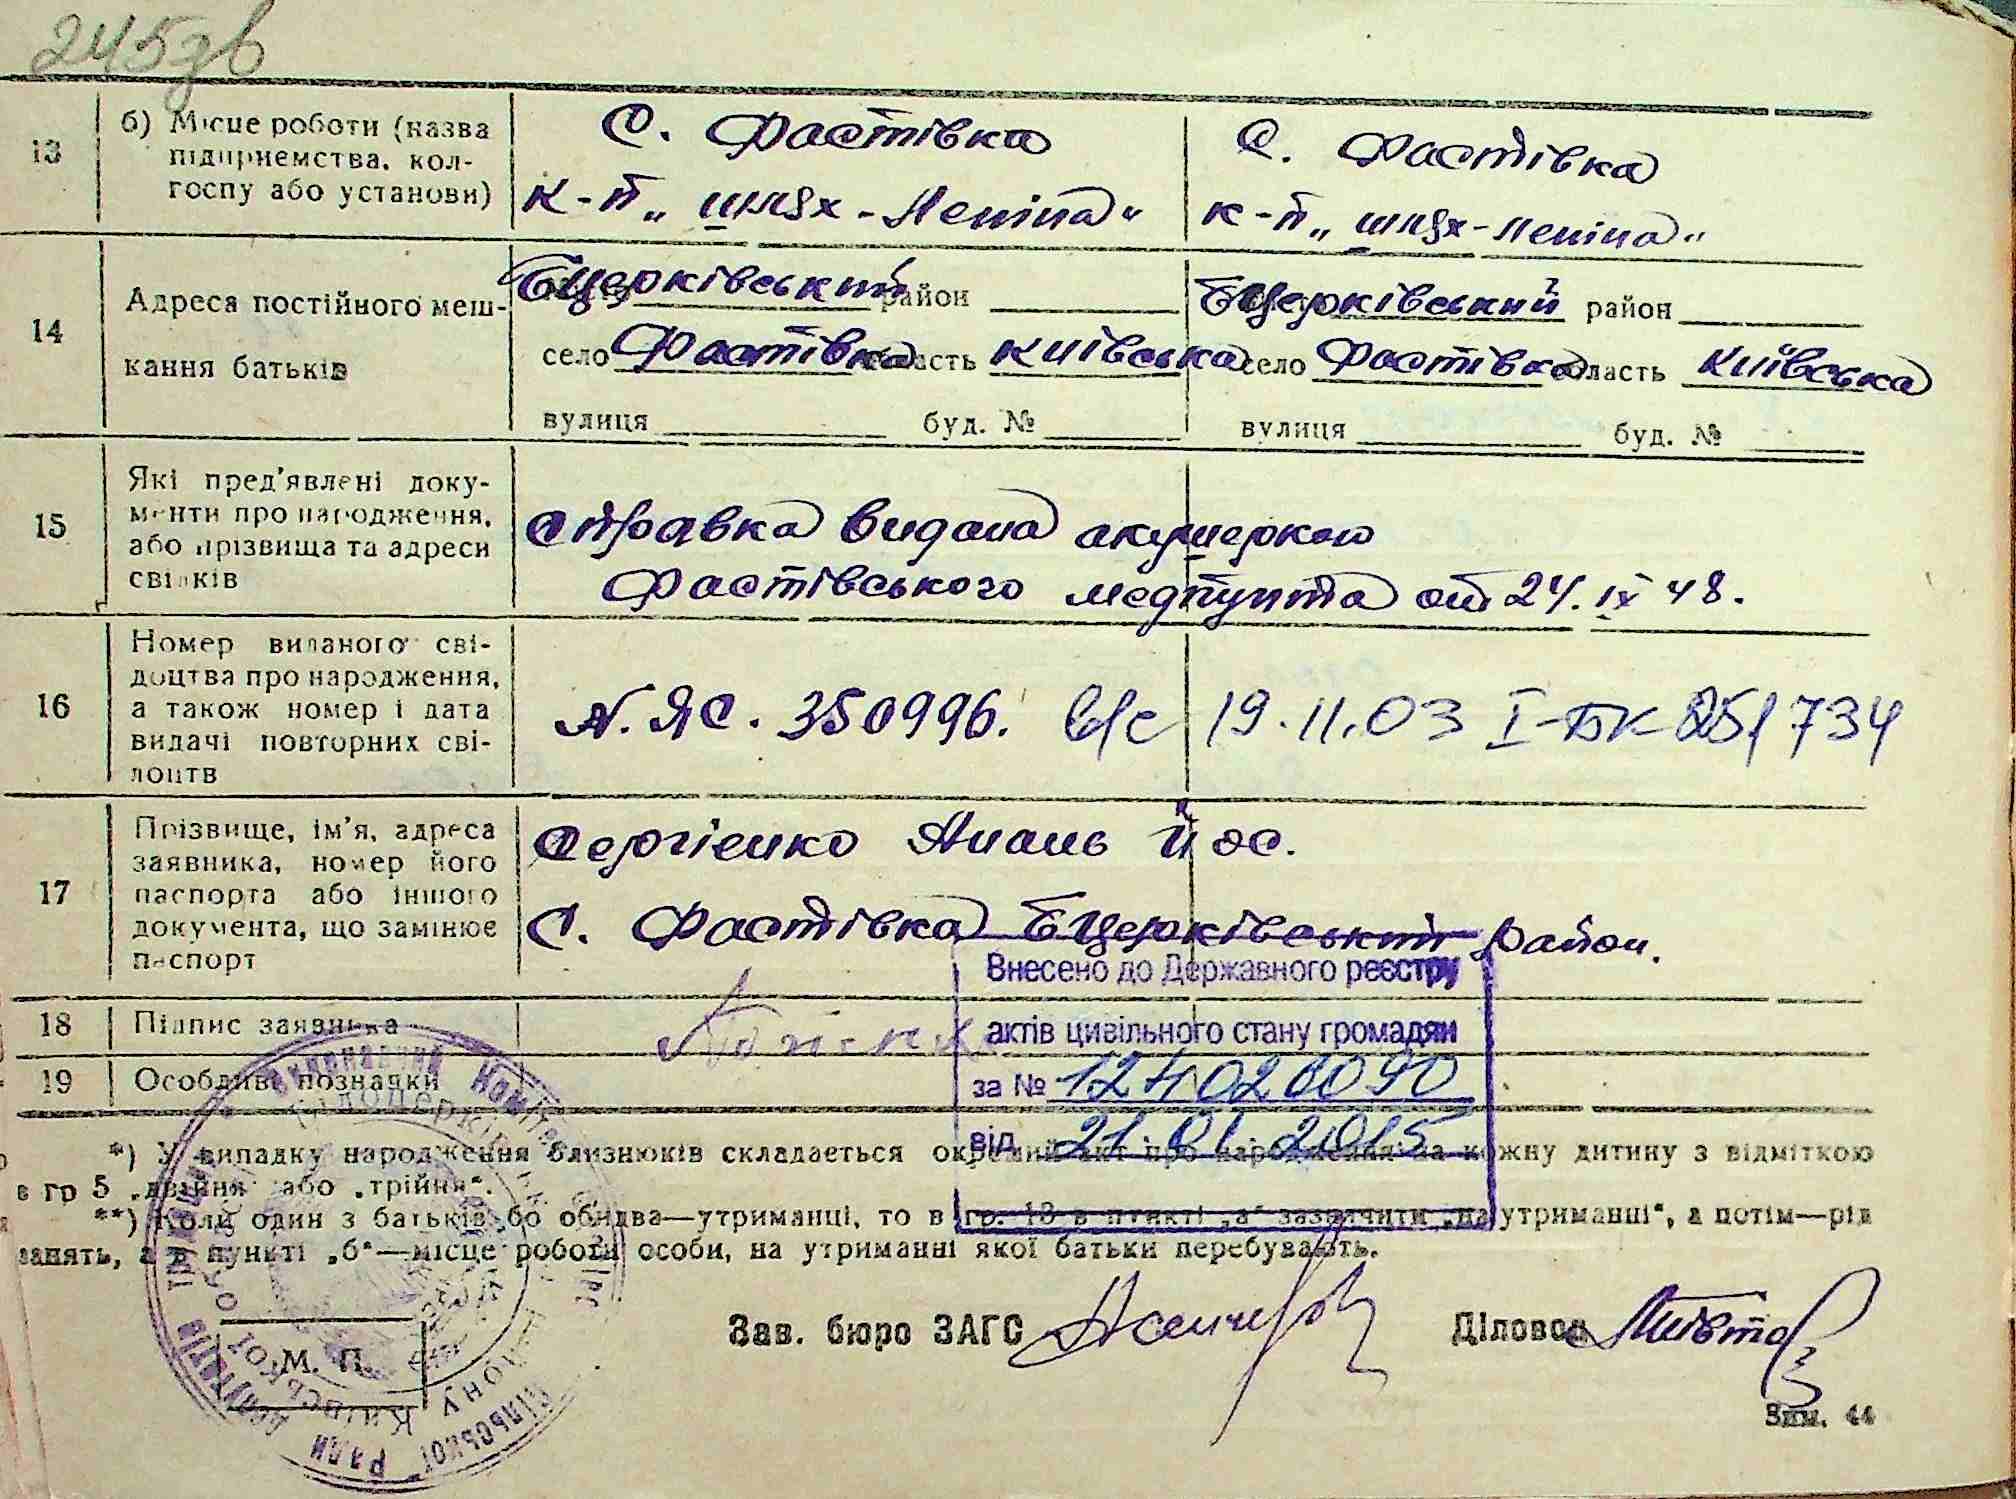 245зв
13
б) Місце роботи (назва
підприємства, кол-
госпу або установи)
С. Фастівка
к-п „шлях-Леніна"
С. Фастівка
к-п „шлях-Леніна"
14
Адреса постійного меш-
кання батьків
БЦерківський район
село Фастівка область Київська
вулиця буд. №
БЦерківський район
село Фастівка область Київська
вулиця буд. №
15
Які пред'явлені доку-
менти про народження,
або прізвища та адреси
свідків
Справка видана акушеркою
Фастівського медпункта от 24. ІХ 48.
16
Номер виданого сві-
доцтва про народження,
а також номер і дата
видачі повторних сві-
доцтв
N. ЯС. 350996. в/с 19.11.03 I-БК 251734
17
Прізвище, ім'я, адреса
заявника, номер його
паспорта або іншого
документа, що замінює
паспорт
Сергієнко
С. Фастівка БЦерківський район.
18
Підпис заявника
19
Особливі познадки
Внесено до Державного реєстру
актів цивільного стану громадян
за №
від 21.01.2015
*) У випадку народження близнюків складається окремий акт про народження на кожну дитину з відміткою
в гр 5 „двійня" або „трійня".
**) Коли один з батьків або обидва—утриманці, то в гр. 13 в пункті „а" зазначити „на утриманні", а потім—рід
занять, а в пункті „б"—місце роботи особи, на утриманні якої батьки перебувають.
М. П.
Зав. бюро ЗАГС
Діловод
Зам. 44